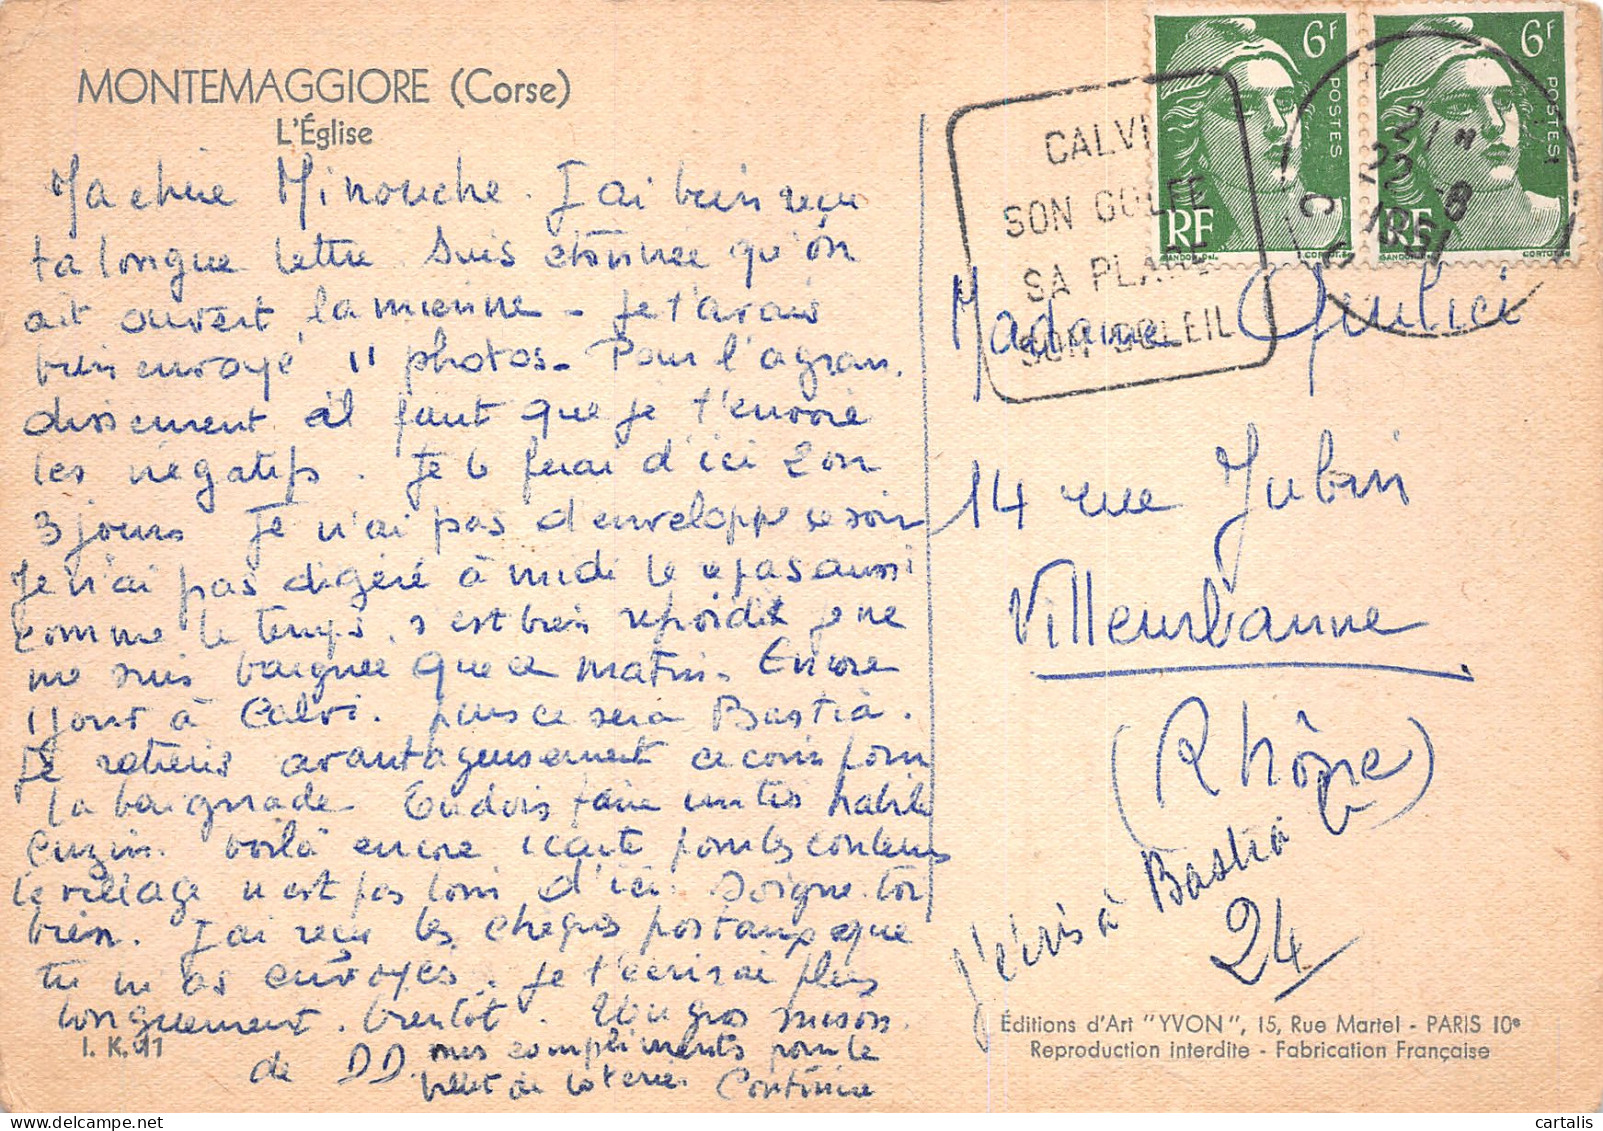 MONTEMAGGIORE (Corse)
L'Église
Ma chérie Minouche. J'ai bien reçu
ta longue lettre. Suis étonnée qu'on
ait ouvert la mienne - Je t'avais
bien envoyé 11 photos - Pour l'agran.
dissement il faut que je t'envoie
les négatifs. Je le ferai d'ici 2 ou
3 jours Je n'ai pas d'enveloppe ce soir
Je n'ai pas digéré à midi le repas aussi
comme le temps s'est bien refroidi je ne
me suis baignée que ce matin. Encore
1 jour à Calvi. puis ce sera Bastia.
Je retiens avantageusement ce coin pour
la baignade Tu dois faire un très habile
Voilà encore 1 carte pour les
le village n'est pas loin d'ici. Soigne-toi
bien. J'ai reçu les chèques postaux que
tu m'as envoyés. Je t'écrirai plus
longuement bientôt. Un gros
de DD. mes compliments pour le
billet de loterie. Continue
I. K. 11
6F POSTES RF
GANDON. Del. CORTOT. Sc
6F POSTES RF
GANDON. Del. CORTOT. Sc
CALVI
SON GOLFE
SA PLAGE
SON SOLEIL
21 H
22 -8
1951
Madame
14 rue Jubin
Villeurbanne
(Rhône)
J'écris à Bastia
24
Éditions d'Art "YVON", 15, Rue Martel - PARIS 10e
Reproduction interdite - Fabrication Française
cartalis delcampe.net